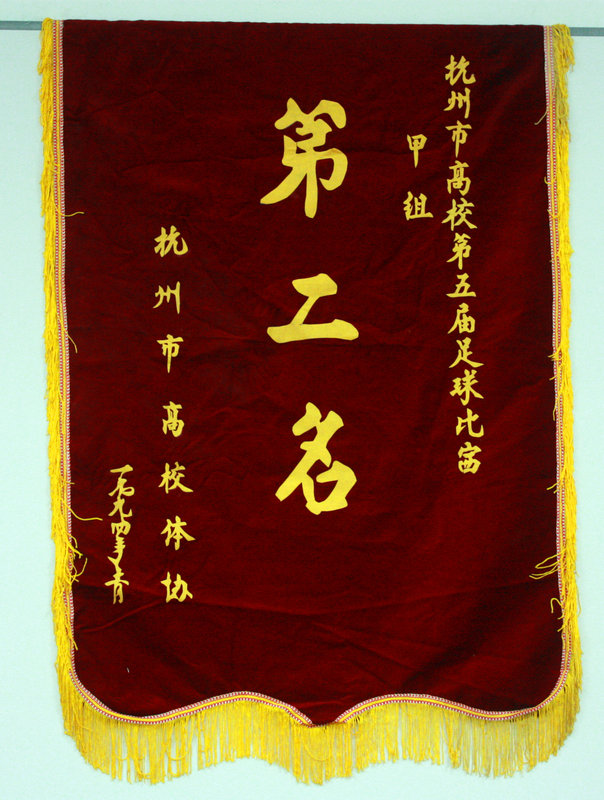 杭州市高校第五届足球比赛
甲组
第二名
杭州市高校体协
一九九四年十二月